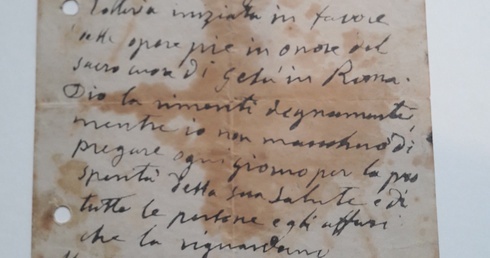 lotteria iniziata in favore
delle opere pie in onore del
sacro cuore di Gesù in Roma.
Dio la rimeriti degnamente,
mentre io non mancherò di
pregare ogni giorno per la pro
sperità della sua salute e di
tutte le persone e gli affari
che la riguardano